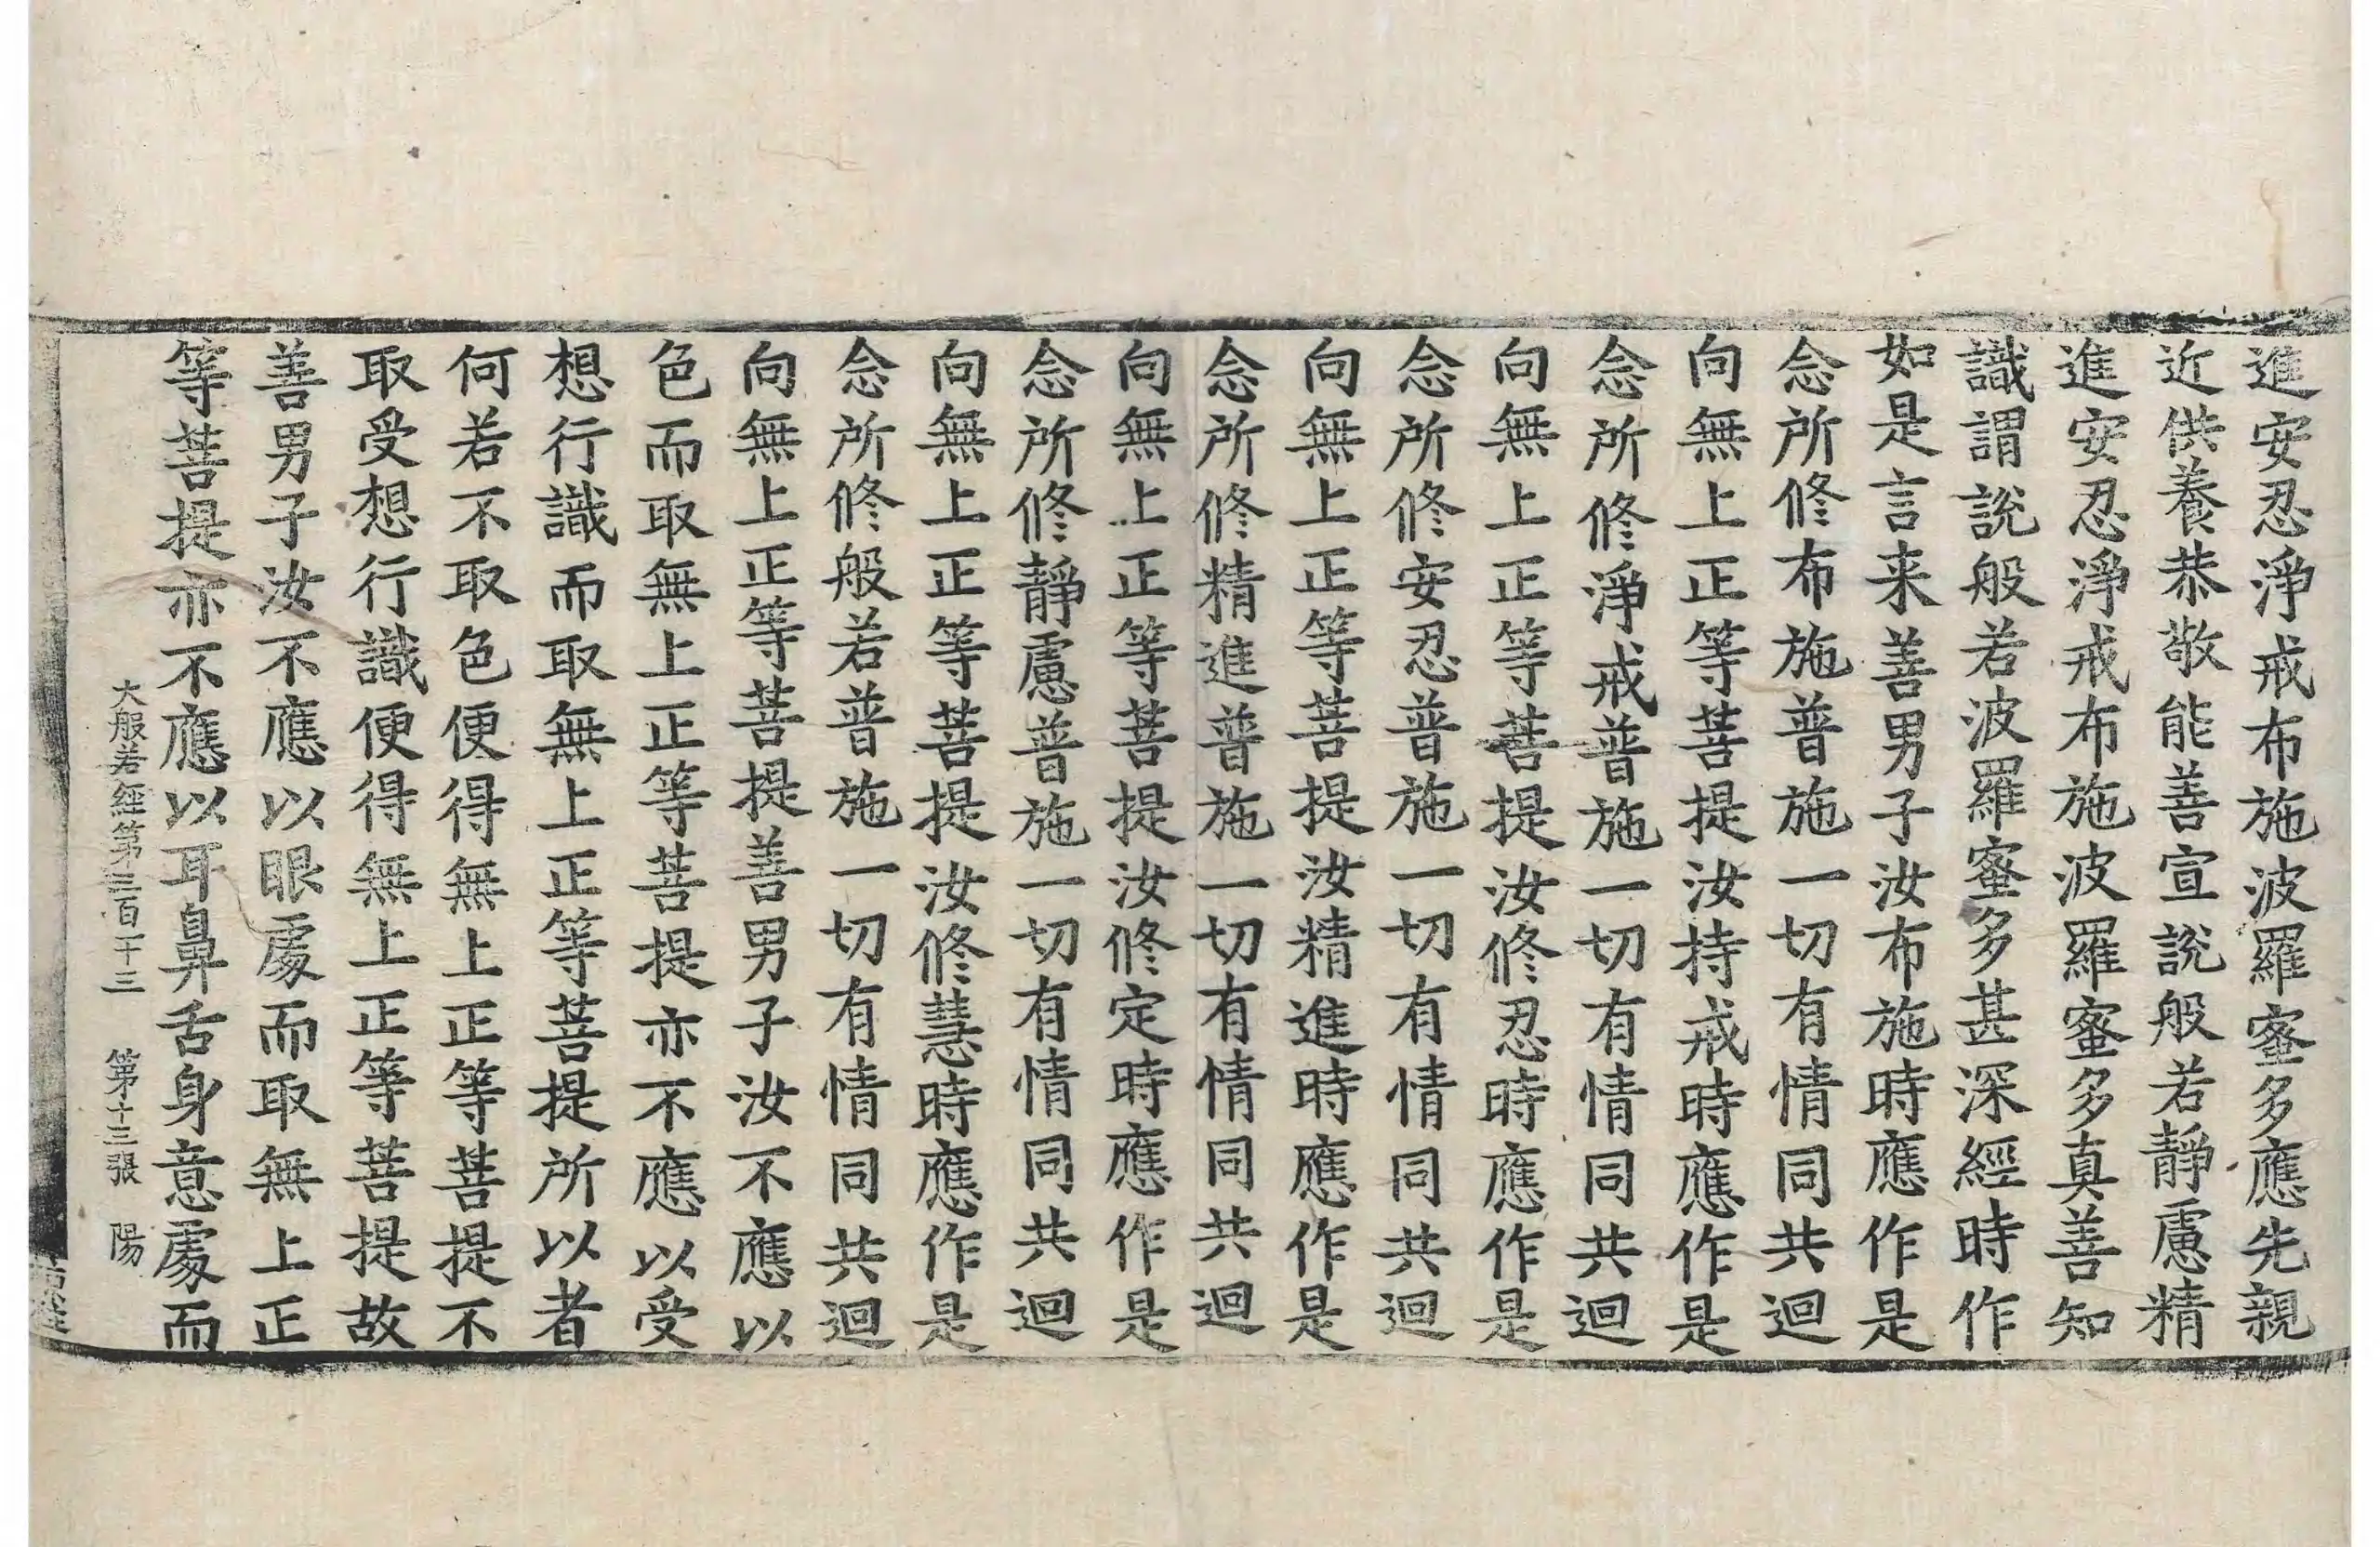 進安忍淨戒布施波羅蜜多應先親
近供養恭敬能善宣說般若靜慮精
進安忍淨戒布施波羅蜜多真善知
識謂說般若波羅蜜多甚深經時作
如是言来善男子汝布施時應作是
念所修布施普施一切有情同共迴
向無上正等菩提汝持戒時應作是
念所修淨戒普施一切有情同共迴
向無上正等菩提汝修忍時應作是
念所修安忍普施一切有情同共迴
向無上正等菩提汝精進時應作是
念所修精進普施一切有情同共迴
向無上正等菩提汝修定時應作是
念所修靜慮普施一切有情同共迴
向無上正等菩提汝修慧時應作是
念所修般若普施一切有情同共迴
向無上正等菩提善男子汝不應以
色而取無上正等菩提亦不應以受
想行識而取無上正等菩提所以者
何若不取色便得無上正等菩提不
取受想行識便得無上正等菩提故
善男子汝不應以眼處而取無上正
等菩提亦不應以耳鼻舌身意處而
大般若經第三百十三 第十三張 陽